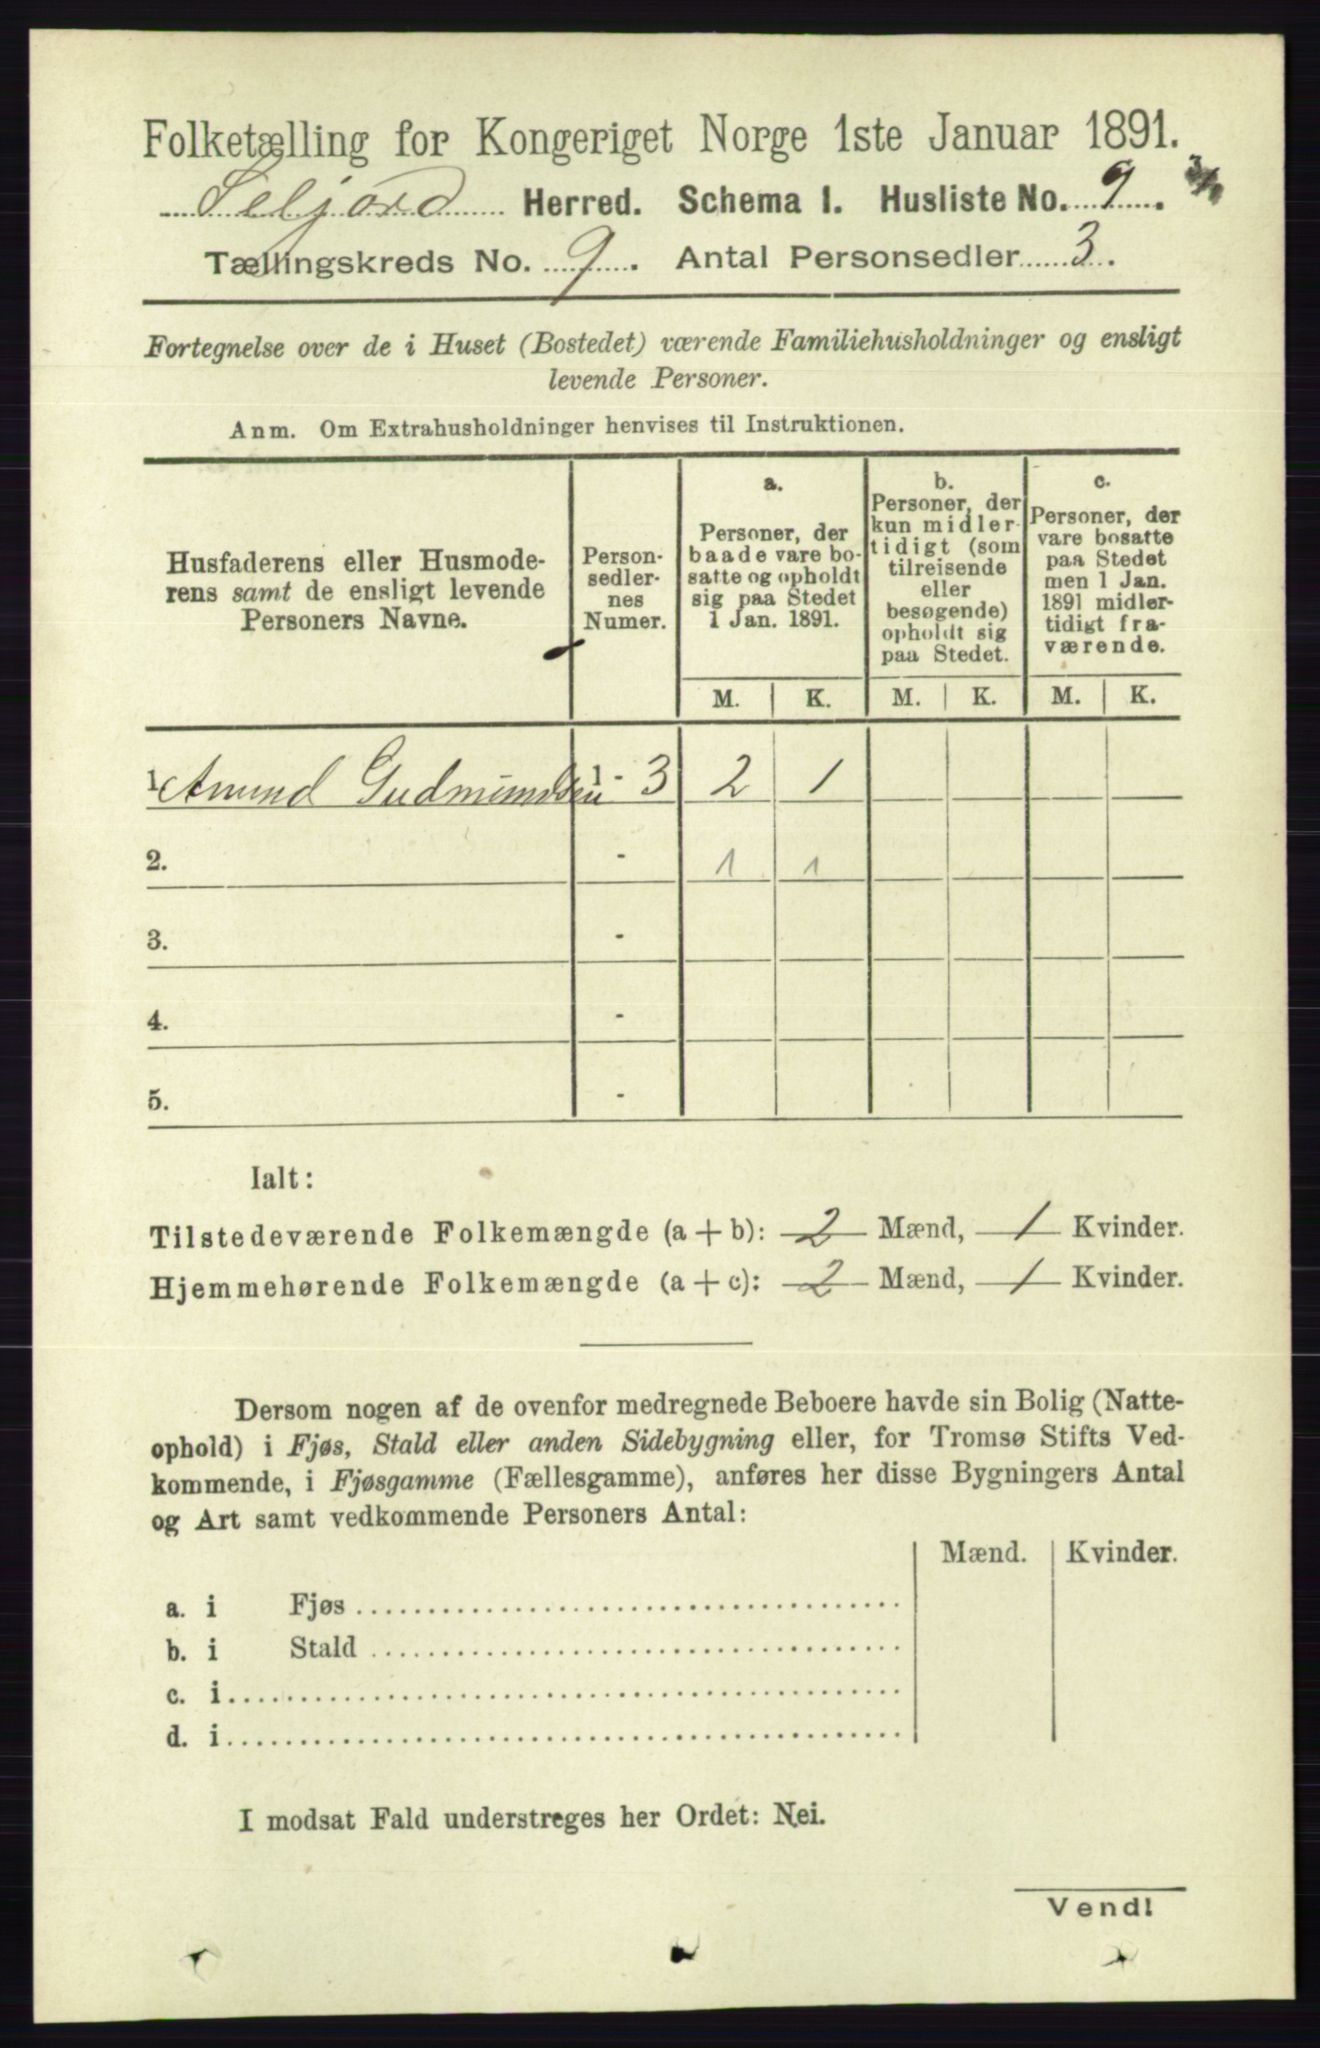 Folketælling for Kongeriget Norge 1ste Januar 1891.
Seljord Herred. Schema 1. Husliste No. 9.
Tællingskreds No. 9. Antal Personsedler 3.
Fortegnelse over de i Huset (Bostedet) værende Familiehusholdninger og ensligt
levende Personer.
Anm. Om Extrahusholdninger henvises til Instruktionen.
Husfaderens eller Husmode-
rens samt de ensligt levende
Personers Navne.
Person-
sedler-
nes
Numer.
a.
Personer, der
baade vare bo-
satte og opholdt
sig paa Stedet
1 Jan. 1891.
b.
Personer, der
kun midler-
tidigt (som
tilreisende
eller
besøgende)
opholdt sig
paa Stedet.
c.
Personer, der
vare bosatte
paa Stedet
men 1 Jan.
1891 midler-
tidigt fra-
værende.
M. K. M. K. M. K.
1 Amund Gudmundsen 1 - 3 2 1
2. - 1 1
3. -
4. -
5. -
Ialt:
Tilstedeværende Folkemængde (a + b): 2 Mænd, 1 Kvinder.
Hjemmehørende Folkemængde (a + c): 2 Mænd, 1 Kvinder.
Dersom nogen af de ovenfor medregnede Beboere havde sin Bolig (Natte-
ophold) i Fjøs, Stald eller anden Sidebygning eller, for Tromsø Stifts Ved-
kommende, i Fjøsgamme (Fællesgamme), anføres her disse Bygningers Antal
og Art samt vedkommende Personers Antal:
Mænd. Kvinder.
a. i Fjøs
b. i Stald
c. i
d. i
I modsat Fald understreges her Ordet: Nei.
Vend!